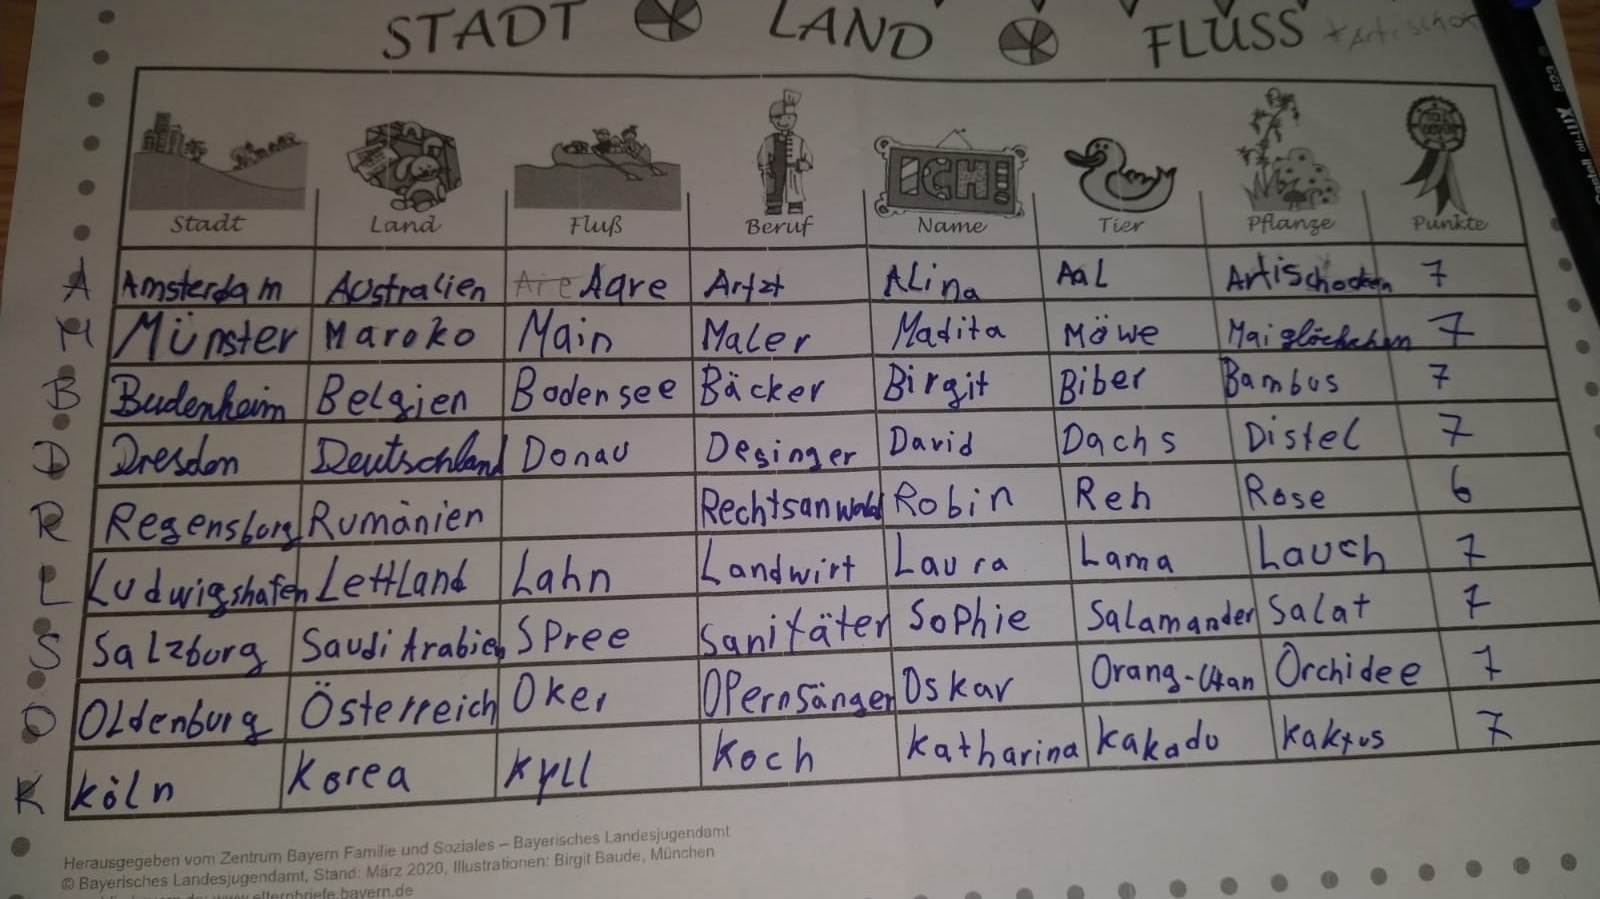 STADT LAND FLUSS
ICH!
Stadt Land Fluß Beruf Name Tier Pflanze Punkte
A Amsterdam Australien Are Aare Artzt Alina Aal Artischocken 7
M Münster Maroko Main Maler Madita Möwe Maiglöckchen 7
B Budenheim Belgien Bodensee Bäcker Birgit Biber Bambus 7
D Dresden Deutschland Donau Desinger David Dachs Distel 7
R Regensburg Rumänien Rechtsanwald Robin Reh Rose 6
L Ludwigshafen Lettland Lahn Landwirt Laura Lama Lauch 7
S Salzburg Saudi Arabien Spree Sanitäter Sophie Salamander Salat 7
O Oldenburg Österreich Oker Opernsänger Oskar Orang-Utan Orchidee 7
K Köln Korea Kyll Koch Katharina Kakadu Kaktus 7
Herausgegeben vom Zentrum Bayern Familie und Soziales – Bayerisches Landesjugendamt
© Bayerisches Landesjugendamt, Stand: März 2020, Illustrationen: Birgit Baude, München
www.elternbriefe.bayern.de